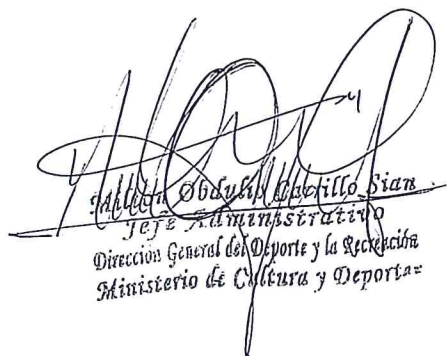 Obdulio Castillo Sian
Jefe Administrativo
Dirección General del Deporte y la Recreación
Ministerio de Cultura y Deportes